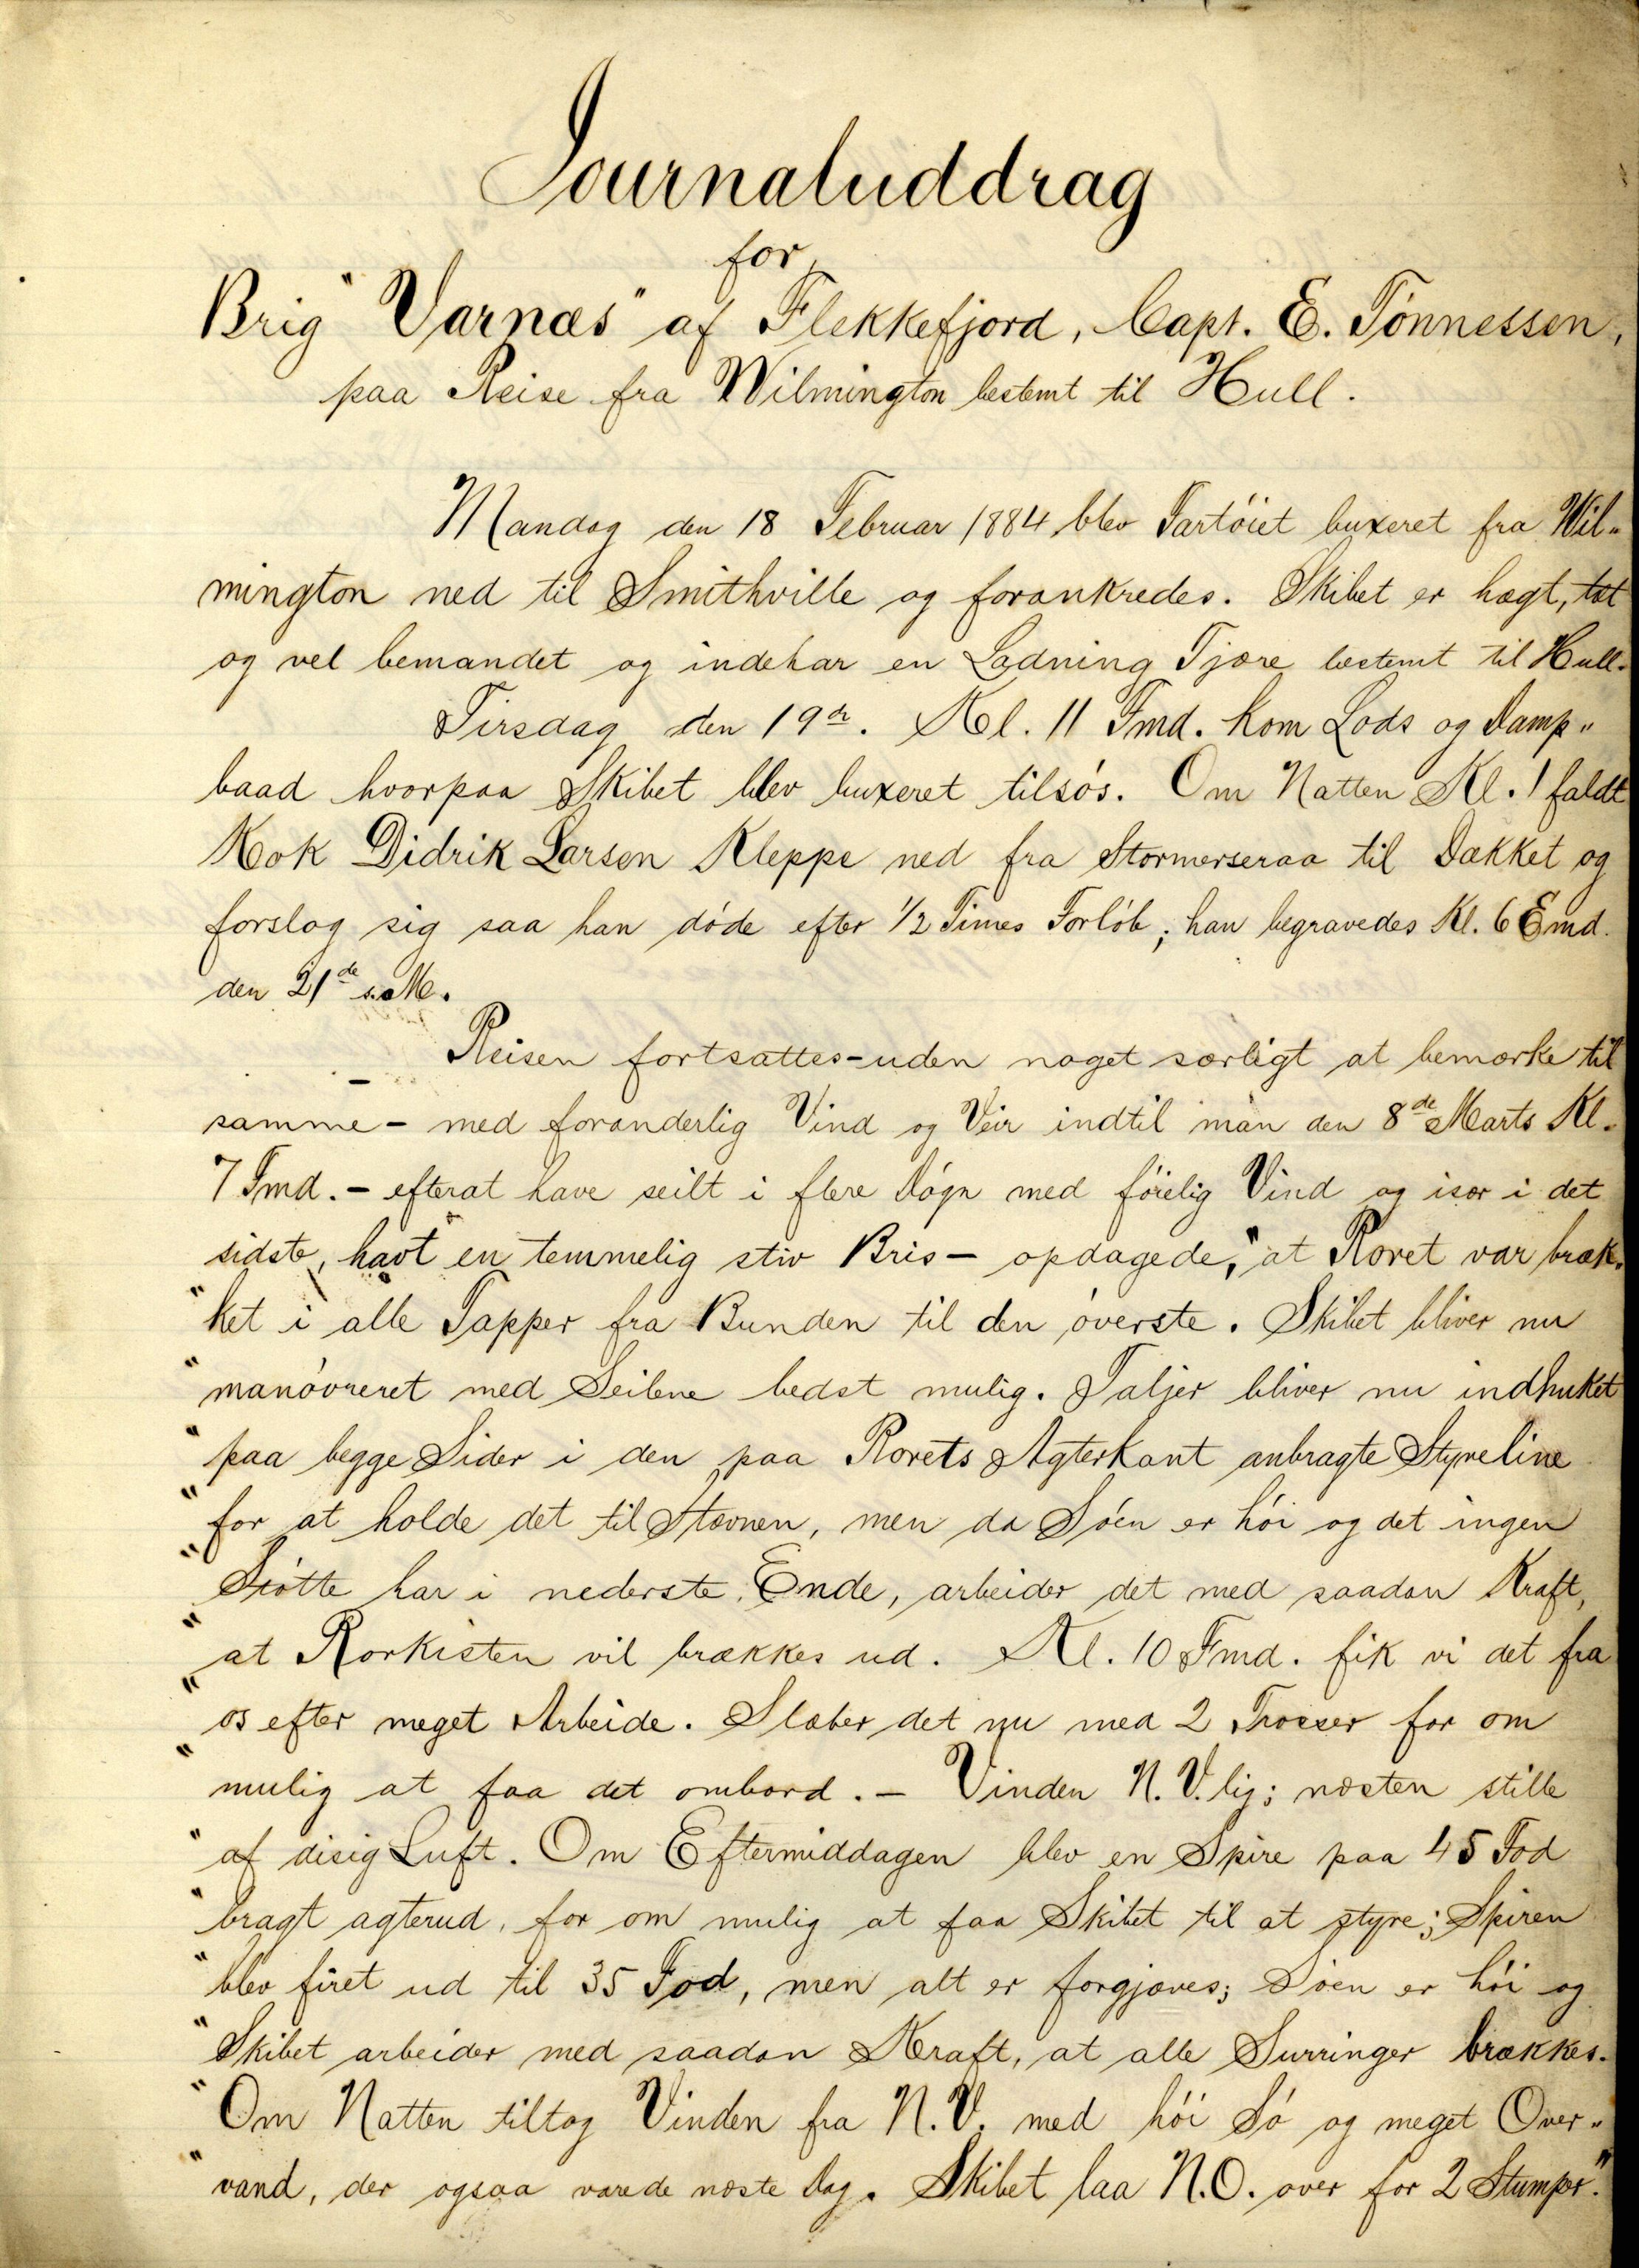 Journaluddrag
for
Brig "Varnæs" af Flekkefjord, Capt. E. Tönnessen,
paa Reise fra Wilmington bestemt til Hull.
Mandag den 18 Februar 1884 blev Fartöiet buxeret fra Wil-
mington ned til Smithville og forankredes. Skibet er hægt, tæt
og vel bemandet og indehar en Ladning Tjære bestemt til Hull.
Tirsdag den 19de. Kl. 11 Fmd. kom Lods og Damp-
baad hvorpaa Skibet blev buxeret tilsös. Om Natten Kl. 1 faldt
Kok Didrik Larsen Kleppe ned fra Stormerseraa til Dækket og
forslog sig saa han döde efter 1/2 Times Forlöb; han begravedes Kl. 6 Emd.
den 21de s. M.
Reisen fortsattes - uden noget særligt at bemærke til
samme - med foranderlig Vind og Veir indtil man den 8de Marts Kl.
7 Fmd. - efterat have seilt i flere Dögn med föielig Vind og især i det
sidste, havt en temmelig stiv Bris - opdagede, "at Roret var bræk-
"ket i alle Tapper fra Bunden til den överste. Skibet bliver nu
"manövreret med Seilene bedst mulig. Taljer bliver nu indhuket
"paa begge Sider i den paa Rorets Agterkant anbragte Styreline
"for at holde det til Stævnen, men da Söen er höi og det ingen
"Stötte har i nederste Ende, arbeider det med saadan Kraft,
"at Rorkisten vil brækkes ud. Kl. 10 Fmd. fik vi det fra
"os efter meget Arbeide. Slæber det nu med 2 Trosser for om
"mulig at faa det ombord. - Vinden N.V.lig; næsten stille
"af disig Luft. Om Eftermiddagen blev en Spire paa 45 Fod
"bragt agterud, for om mulig at faa Skibet til at styre; Spiren
"blev firet ud til 35 Fod, men alt er forgjæves; Söen er höi og
"Skibet arbeider med saadan Kraft, at alle Surringer brækkes.
"Om Natten tiltog Vinden fra N.V. med höi Sö og meget Over-
"vand, der ogsaa varede næste Dag. Skibet laa N.O. over for 2 Stumper."